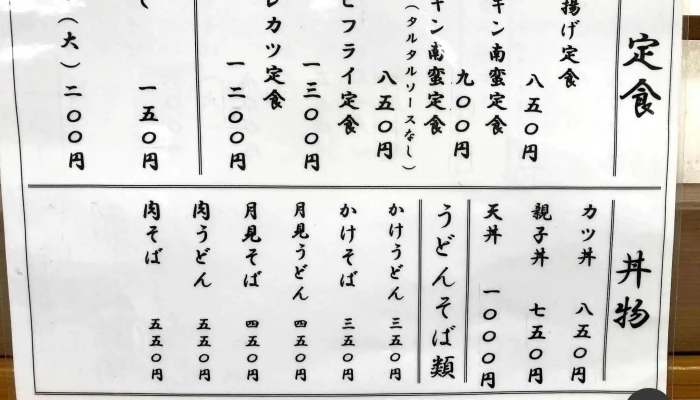 定食
揚げ定食
八五〇円
キン南蛮定食
九〇〇円
キン南蛮定食
（タルタルソースなし）
八五〇円
ビフライ定食
一三〇〇円
レカツ定食
一二〇〇円
一五〇円
（大）二〇〇円
丼物
カツ丼 八五〇円
親子丼 七五〇円
天丼 一〇〇〇円
うどんそば類
かけうどん 三五〇円
かけそば 三五〇円
月見うどん 四五〇円
月見そば 四五〇円
肉うどん 五五〇円
肉そば 五五〇円